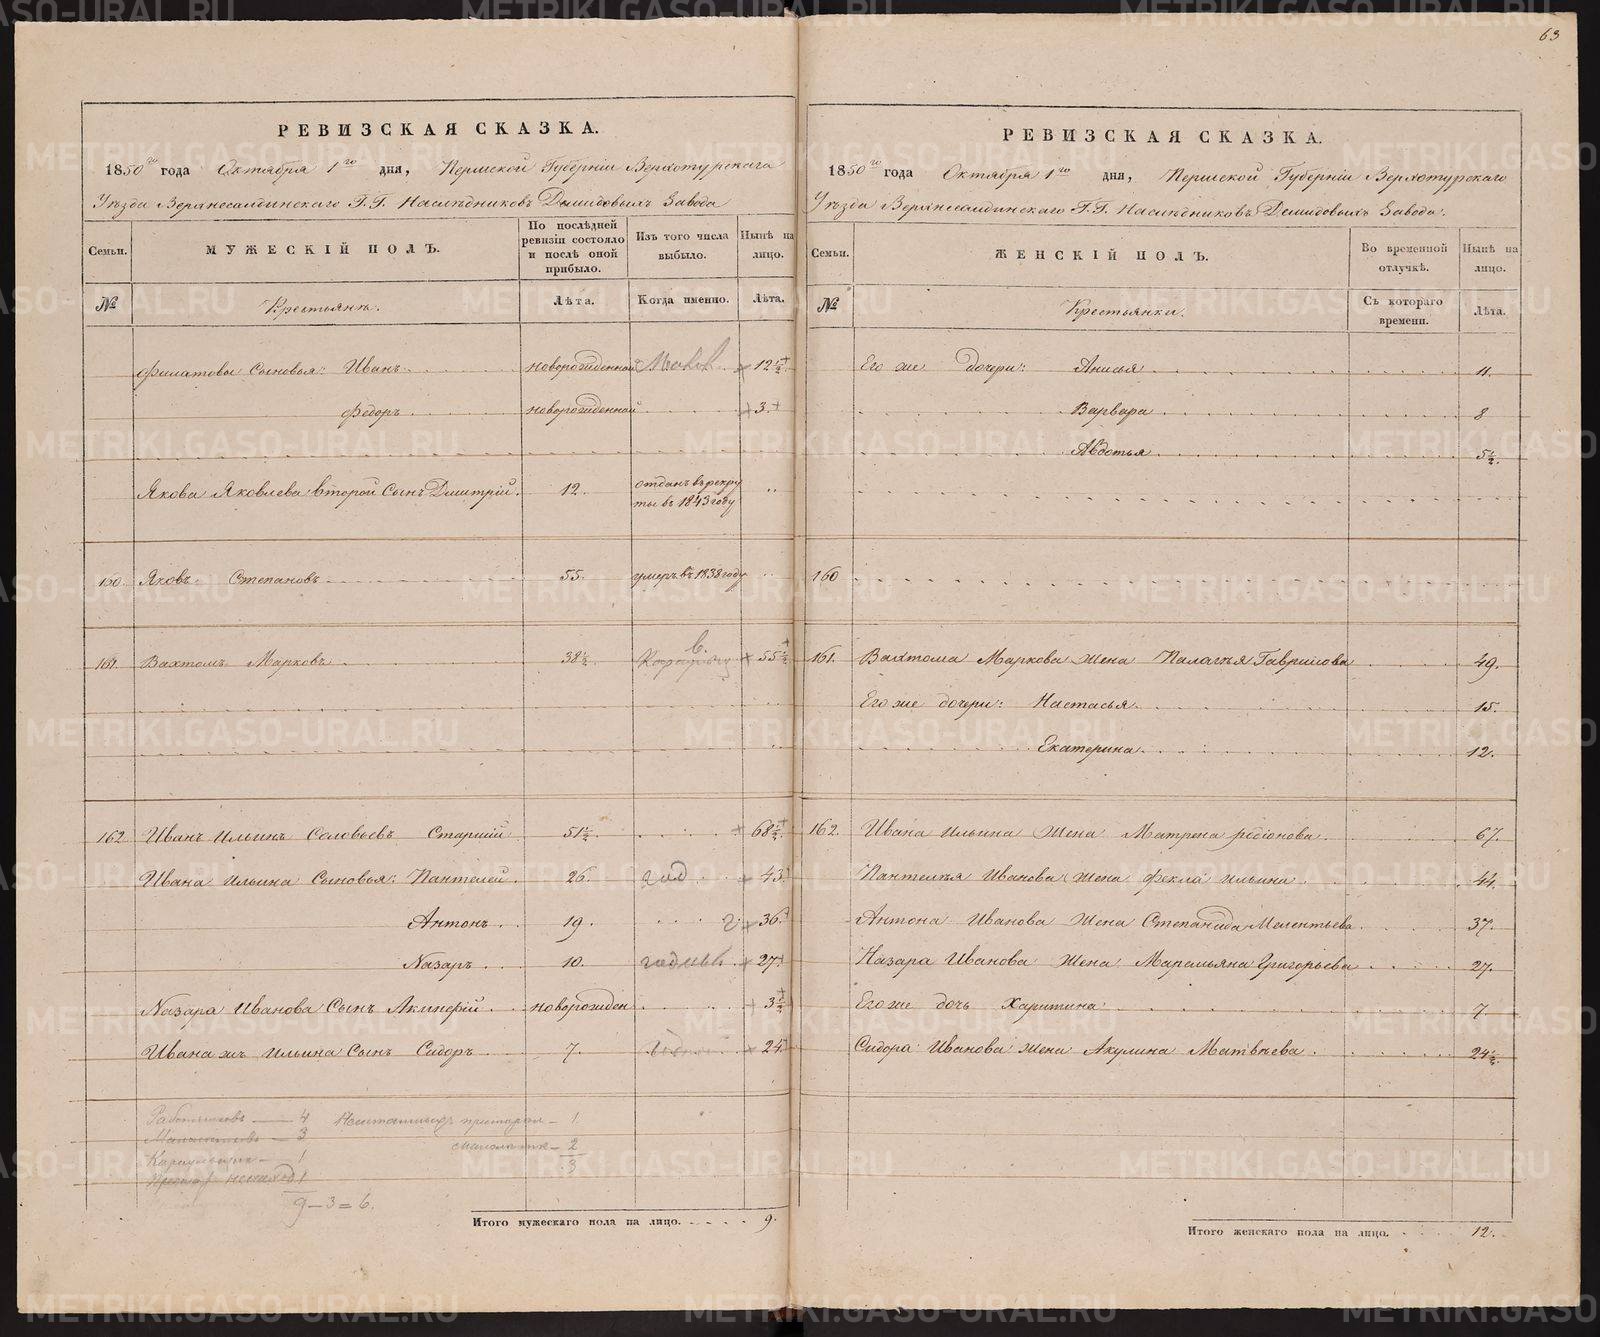 63
РЕВИЗСКАЯ СКАЗКА.
1850го года Октября 1го дня, Пермской Губерніи Верхотурскаго
Уѣзда Верхнесалдинскаго Г.Г. Наслѣдниковъ Демидовыхъ Завода
Семьи. МУЖЕСКІЙ ПОЛЪ. По послѣдней ревизіи состояло и послѣ оной прибыло. Изъ того числа выбыло. Нынѣ на лицо.
№ Крестьянѣ. Лѣта. Когда именно. Лѣта.
Филатовы Сыновья: Иванъ новорожденной 12½
Федоръ новорожденной 3
Якова Яковлева второй Сынъ Дмитрій. 12. отданъ въ рекруты въ 1843 году
160. Яковъ Степановъ 55. умеръ въ 1838 году
161. Вахтомъ Марковъ 38½ 55½
162 Иванъ Ильинъ Соловьевъ Старшій 51½ 68½
Ивана Ильина Сыновья: Пантелей 26. год 43
Антонъ 19. 36
Назаръ 10. 27
Назара Иванова Сынъ Акинфій новорожден 3½
Ивана жъ Ильина Сынъ Сидоръ 7. 24
Работниковъ — 4
3
Караульщик — 1
1
9—3=6.
1
2
3
Итого мужескаго пола на лицо. 9.
РЕВИЗСКАЯ СКАЗКА.
1850го года Октября 1го дня, Пермской Губерніи Верхотурскаго
Уѣзда Верхнесалдинскаго Г.Г. Наслѣдниковъ Демидовыхъ Завода.
Семьи. ЖЕНСКІЙ ПОЛЪ. Во временной отлучкѣ. Нынѣ на лицо.
№ Крестьянки. Съ котораго времени. Лѣта.
Его же дочери: Анисья 11.
Варвара 8
Авдотья 5½
160
161. Вахтома Маркова жена Палагѣя Гаврилова 49.
Его же дочери: Настасья 15.
Екатерина 12.
162. Ивана Ильина жена Матрена родіонова 67.
Пантелѣя Иванова жена Фекла Ильина 44.
Антона Иванова жена Степанида Мелентьева 37.
Назара Иванова жена Маремьяна Григорьева 27.
Его же дочь Харитина 7.
Сидора Иванова жена Акулина Матвѣева 24½
Итого женскаго пола на лицо. 12.
METRIKI.GASO-URAL.RU